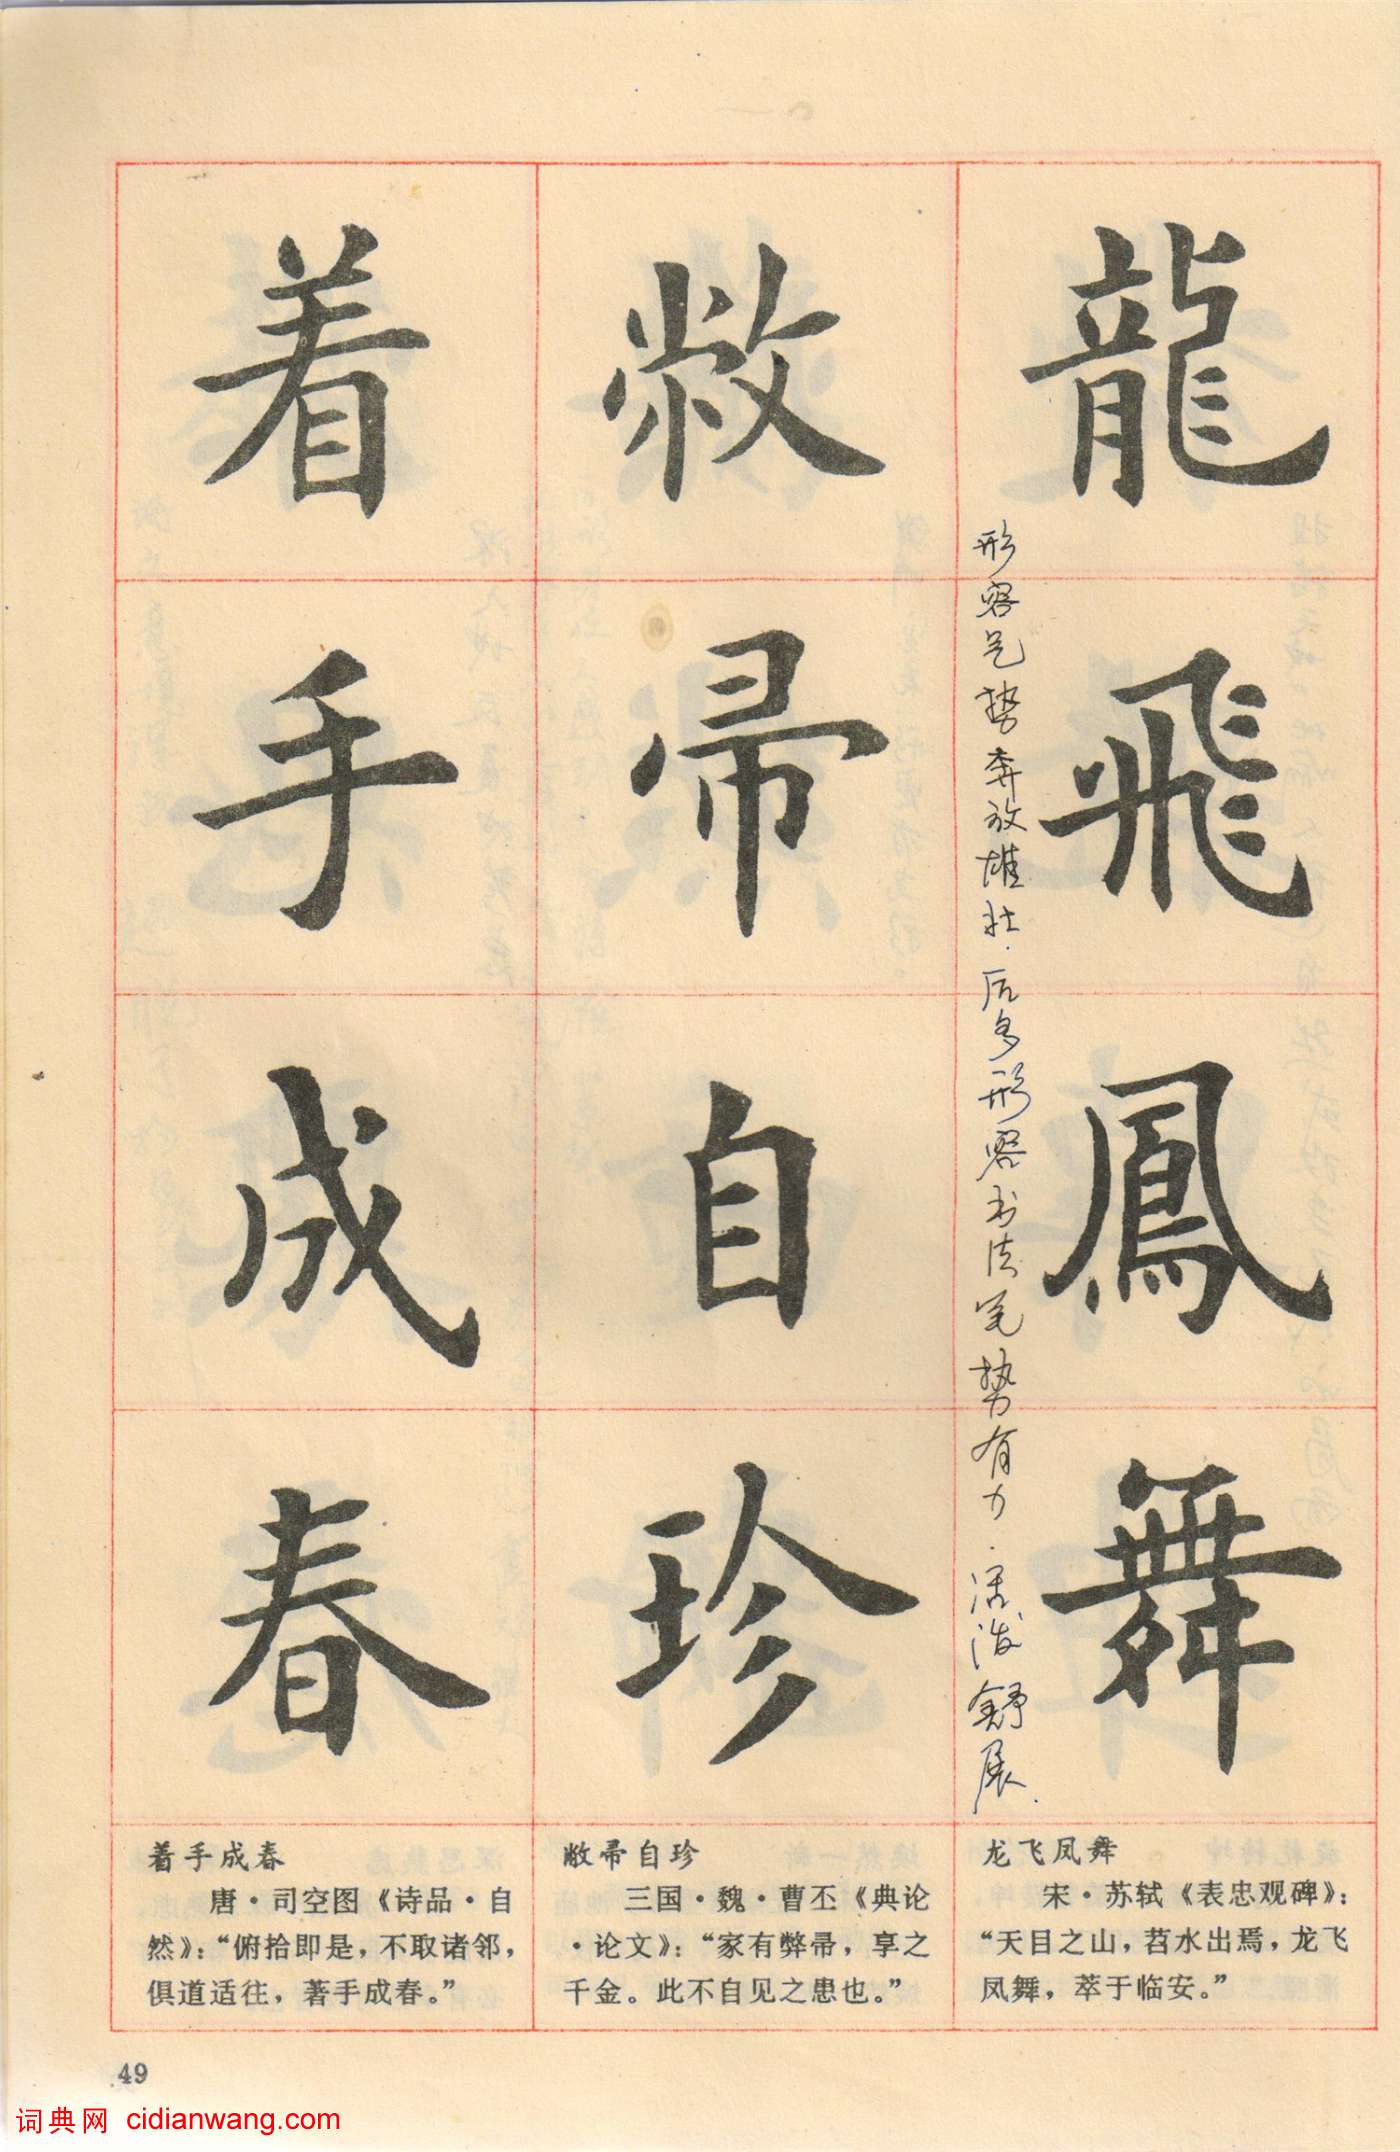 龍飛鳳舞
敝帚自珍
着手成春
形容气势奔放雄壮.后多形容书法笔势有力.活泼舒展.
龙飞凤舞
宋·苏轼《表忠观碑》：
“天目之山，苕水出焉，龙飞
凤舞，萃于临安。”
敝帚自珍
三国·魏·曹丕《典论
·论文》：“家有弊帚，享之
千金。此不自见之患也。”
着手成春
唐·司空图《诗品·自
然》：“俯拾即是，不取诸邻，
俱道适往，著手成春。”
49
词典网 cidianwang.com